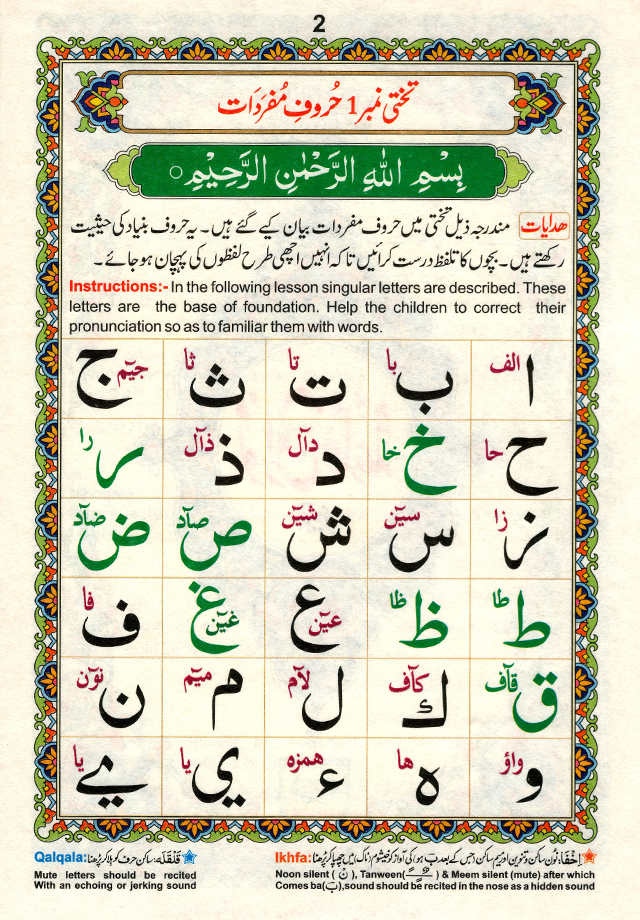 2
تختی نمبر 1 حُروفِ مُفرَدَات
بِسْمِ اللهِ الرَّحْمٰنِ الرَّحِيْمِ ○
ھدایات مندرجہ ذیل تختی میں حروف مفردات بیان کیے گئے ہیں۔ یہ حروف بنیاد کی حیثیت
رکھتے ہیں۔ بچوں کا تلفظ درست کرائیں تاکہ انہیں اچھی طرح لفظوں کی پہچان ہو جائے۔
Instructions:- In the following lesson singular letters are described. These
letters are the base of foundation. Help the children to correct their
pronunciation so as to familiar them with words.
ا الف ب با ت تا ث ثا ج جیٓم
ح حا خ خا د دآل ذ ذآل ر را
ز زا س سیٓن ش شیٓن ص صآد ض ضآد
ط طا ظ ظا ع عیٓن غ غیٓن ف فا
ق قآف ك كآف ل لآم م میٓم ن نوٓن
و واؤ ه ها ء همزه ی یا ے یا
Qalqala: قَلْقَلَه: ساکن حرف کو ہلا کر پڑھنا
Mute letters should be recited
With an echoing or jerking sound
Ikhfa: اِخْفَا: نون ساکن و تنوین اور میم ساکن جس کے بعد ب ہو کی آواز کو خیشوم (ناک) میں چھپا کر پڑھنا
Noon silent ( نْ ), Tanween( ـًـٍـٌ ) & Meem silent (mute) after which
Comes ba(ب),sound should be recited in the nose as a hidden sound